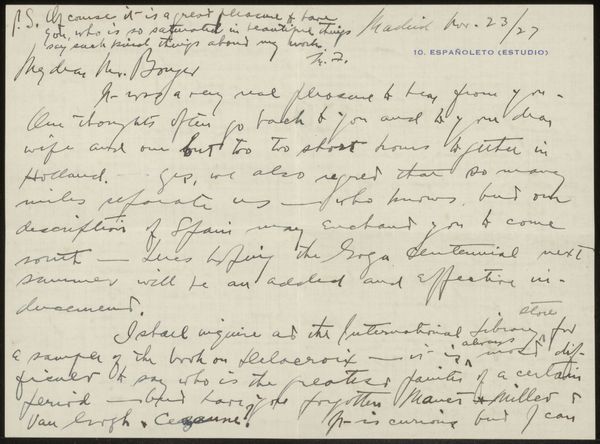 P.S. Of course it is a great pleasure to have
you, who is so saturated in beautiful things
say such kind things about my work.
Madrid Nov. 23/27
10. ESPAÑOLETO (ESTUDIO)
My dear Mr. Bonger
It was a very real pleasure to hear from you.
Our thoughts often go back to you and to your dear
wife and our but too too short hours together in
Holland. – Yes, we also regret that so many
miles separate us — who knows, but our
description of Spain may enchant you to come
south — hoping the Goya Centennial next
summer will be an added and effective in-
ducement.
I shall inquire at the International Library store for
a sample of the book on Delacroix — it is always most dif-
ficult to say who is the greatest painter of a certain
period — but have you forgotten Manet & Millet &
Van Gogh & Cezanne! It is curious but I can